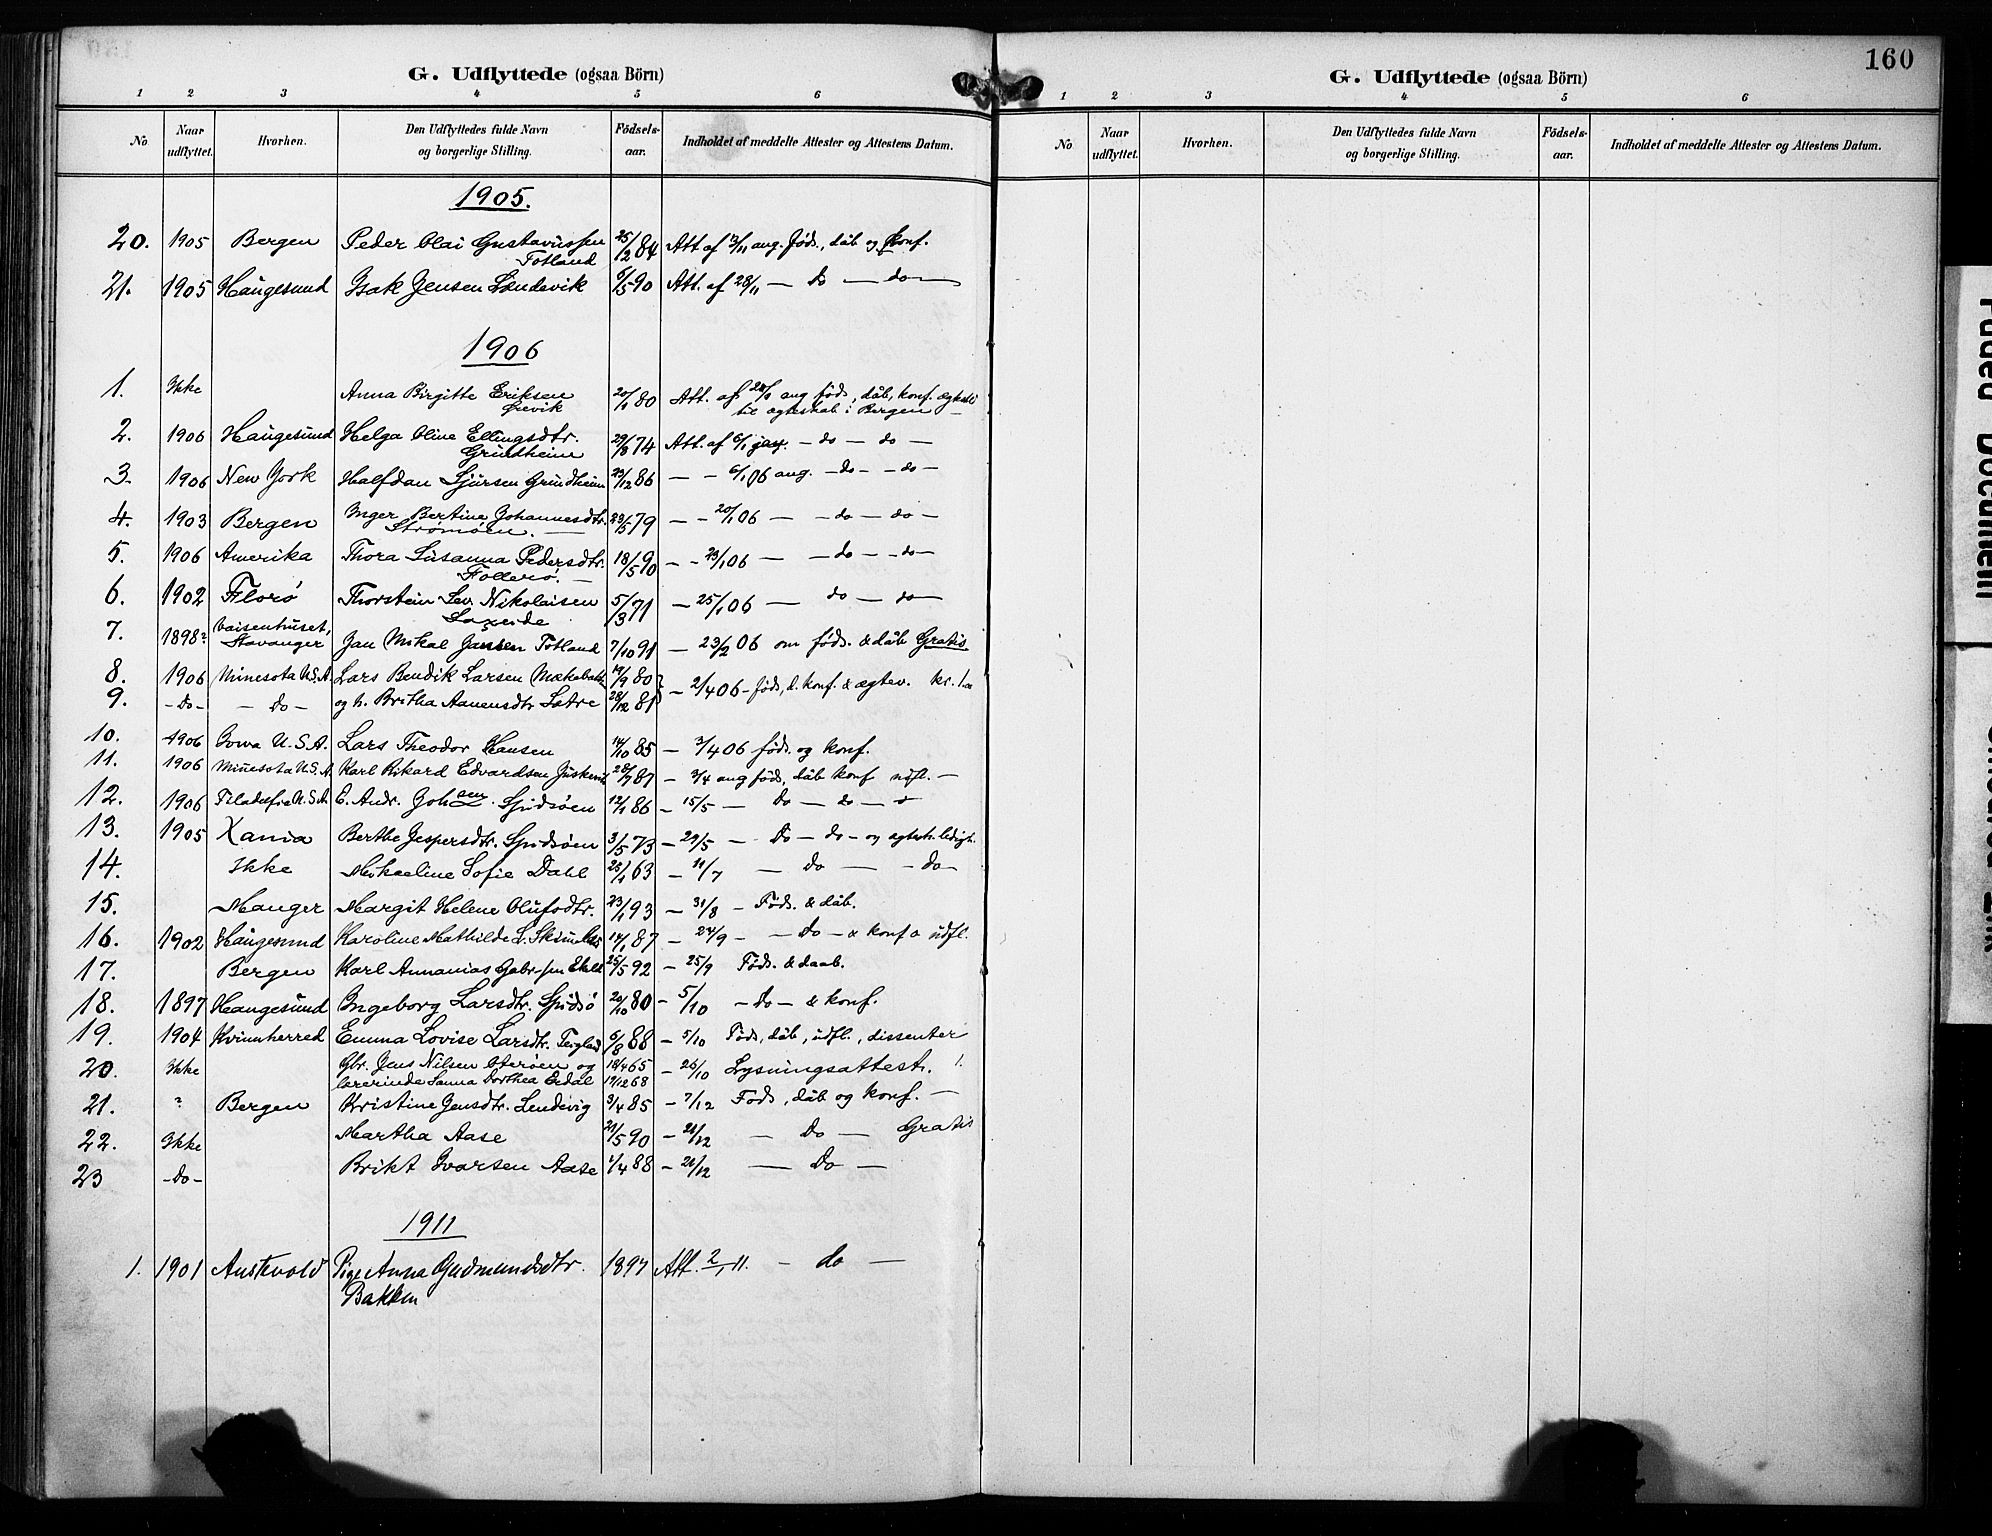 G. Udflyttede (ogsaa Börn)
1 2 3 4 5 6
No Naar udflyttet. Hvorhen. Den Udflyttedes fulde Navn og borgerlige Stilling. Fødsels-aar. Indholdet af meddelte Attester og Attestens Datum.
1905.
20. 1905 Bergen Peder Olai Gustavussen 25/2 84 Att af 3/11 ang. föds., dåb og konf.
Totland
21. 1905 Haugesund Isak Jensen Lændevik 6/5 90 Att. af 28/11 — Do — do —
1906
1. Ikke Anna Birgitte Eriksen 20/1 80 Att. af ang föds, dåb, konf.
til egteskab i Bergen —
2. 1906 Haugesund Helga Oline Ellingsdtr. 29/8 74 Att. af 6/1 — do — do —
Grundheim
3. 1906 New York Halfdan Sjursen Grundheim 23/12 86 — - 6/1 06 ang. — do — - do —
4. 1903 Bergen Inger Bertine Johannesdtr. 23/5 79 — - 20/1 06 — — do — do —
Strømöen. —
5. 1906 Amerika Thora Susanna Pedersdtr. 18/5 90 — - 23/1 06 — — do — - do —
Follerö. —
6. 1902 Florö Thorstein Sev. Nikolaisen 5/3 71 — 25/1 06 — do — do —
7. 1898? Vaisenhuset, Stavanger Jan Mikal Jansen Totland 7/10 91 — 23/2 06 om föds. & dåb Gratis
8. 1906 Minesota U.S.A. Lars Bendik Larsen 19/9 80 — 2/4 06 — föds, d. konf. & egtev. kr. 1.
9. - Do - — Do — og h. Britha Aanensdtr Sætre 28/12 81
10. 1906 Iowa U.S.A. Lars Theodor Hansen 14/10 85 — 3/4 06 föds. og konf.
11. 1906 Minesota U.S.A. Karl Rikard Edvardsen 28/7 87 — 3/4 ang föds, dåb konf udfl. —
12. 1906 Filadelfia U.S.A. E. Andr. Johsen. Spidsöen 12/1 86 — 15/5 — Do — do —
13. 1905 Xania Berthe Jespersdtr. Spidsöen 3/5 73 — 29/5 — Do — do — og egtesk. ledigh.
14. Ikke Mikaeline Sofie Dahl 25/1 63 — 11/7 — Do — - Do —
15. Manger Margit Helene Olufsdtr. 23/1 93 — 31/8 — Föds. & dåb.
16. 1902 Haugesund Karoline Mathilde L. 14/1 87 — 24/9 — — Do — & konf o udfl.
17. Bergen Karl Annanias Gabr.sen 25/5 92 — 25/9 Föds. & daab.
18. 1897 Haugesund Ingeborg Larsdtr. Spidsö 20/10 80 — 5/10 — Do — & konf.
19. 1904 Kvinnherred Emma Lovise Larsdtr. 6/8 88 — 5/10 Föds, dåb, udfl., dissenter
20. Ikke Gbr. Jens Nilsen Oteröen og 18/4 65 — 26/10 Lysningsattest. 1.
lærerinde Sanna Dorthea Eidal 19/12 68
21. ? Bergen Kristine Jensdtr. Lendevig 3/4 85 — 7/12 Föds, dåb og konf. —
22. Ikke Martha Aase 21/5 90 — 21/12 — Do — Gratis
23 - Do - Brikt Ivarsen Aase 1/4 88 — 21/12 — Do —
1911
1. 1901 Austevold Pige Anna Gudmundsdtr. 1897 Att. 2/1 11. — do —
Bakken
160
G. Udflyttede (ogsaa Börn)
1 2 3 4 5 6
No Naar udflyttet. Hvorhen. Den Udflyttedes fulde Navn og borgerlige Stilling. Fødsels-aar. Indholdet af meddelte Attester og Attestens Datum.